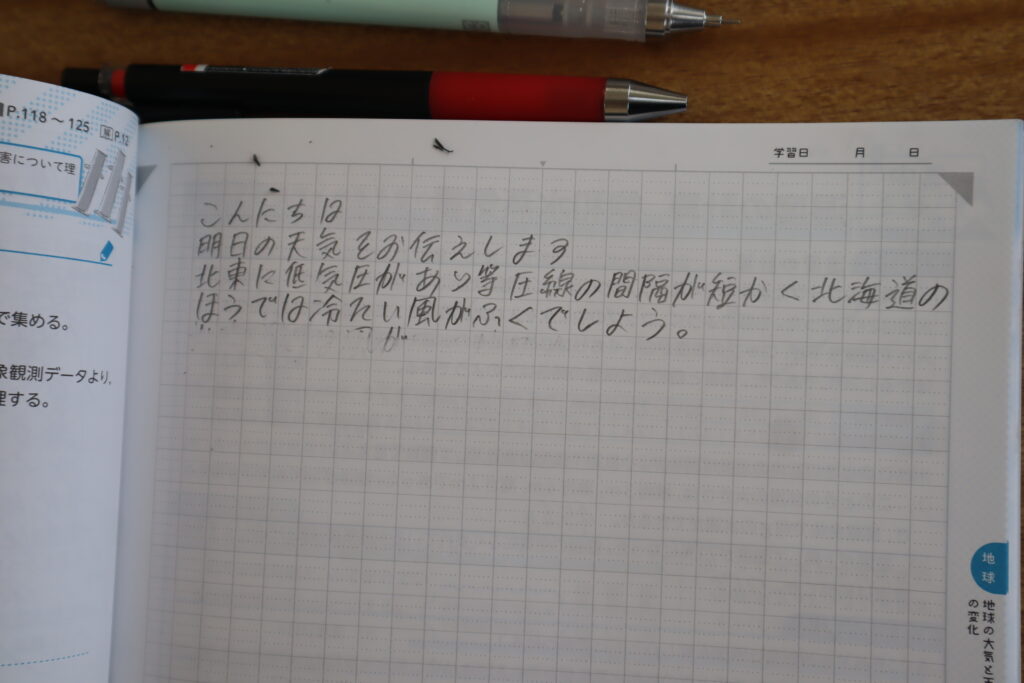 P.118～125 展 P.12
害について理
で集める。
象観測データより,
理する。
学習日 月 日
こんにちは
明日の天気をお伝えします
北東に低気圧があり等圧線の間隔が短かく北海道の
ほうでは冷たい風がふくでしょう。
地球
地球の大気と
の変化